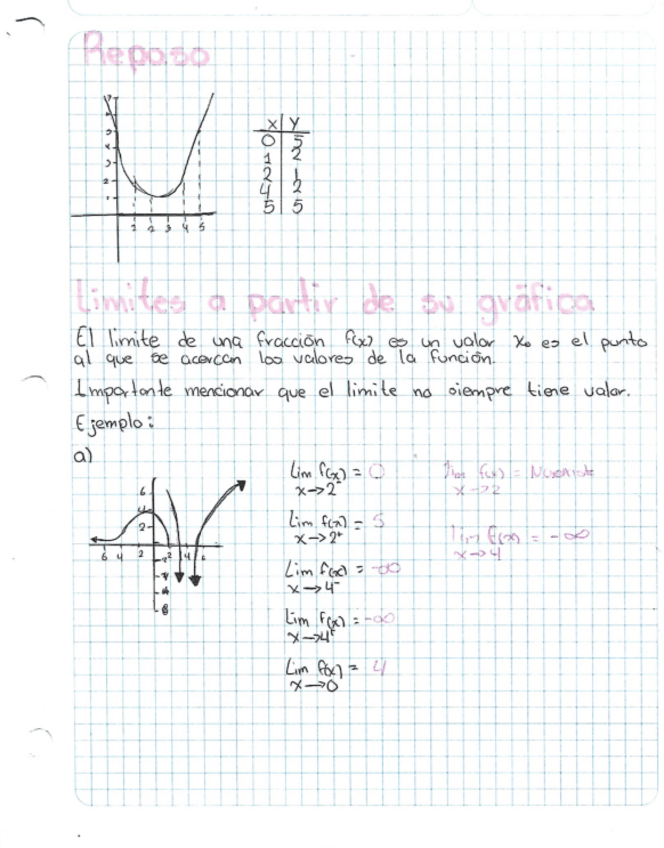 Reposo
7
5
4
3
2
1
1 2 3 4 5
x y
0 5
1 2
2 1
4 2
5 5
Limites a partir de su gráfica
El limite de una fracción f(x) es un valor x₀ es el punto
al que se acercan los valores de la función.
Importante mencionar que el limite no siempre tiene valor.
Ejemplo:
a)
6
4
2
6 4 2 2 4 6
Lim f(x) = 0
x→2⁻
Lim f(x) = 5
x→2⁺
Lim f(x) = -∞
x→4⁻
Lim f(x) = -∞
x→4⁺
Lim f(x) = 4
x→0
Lim f(x) =
x→2
Lim f(x) = -∞
x→4